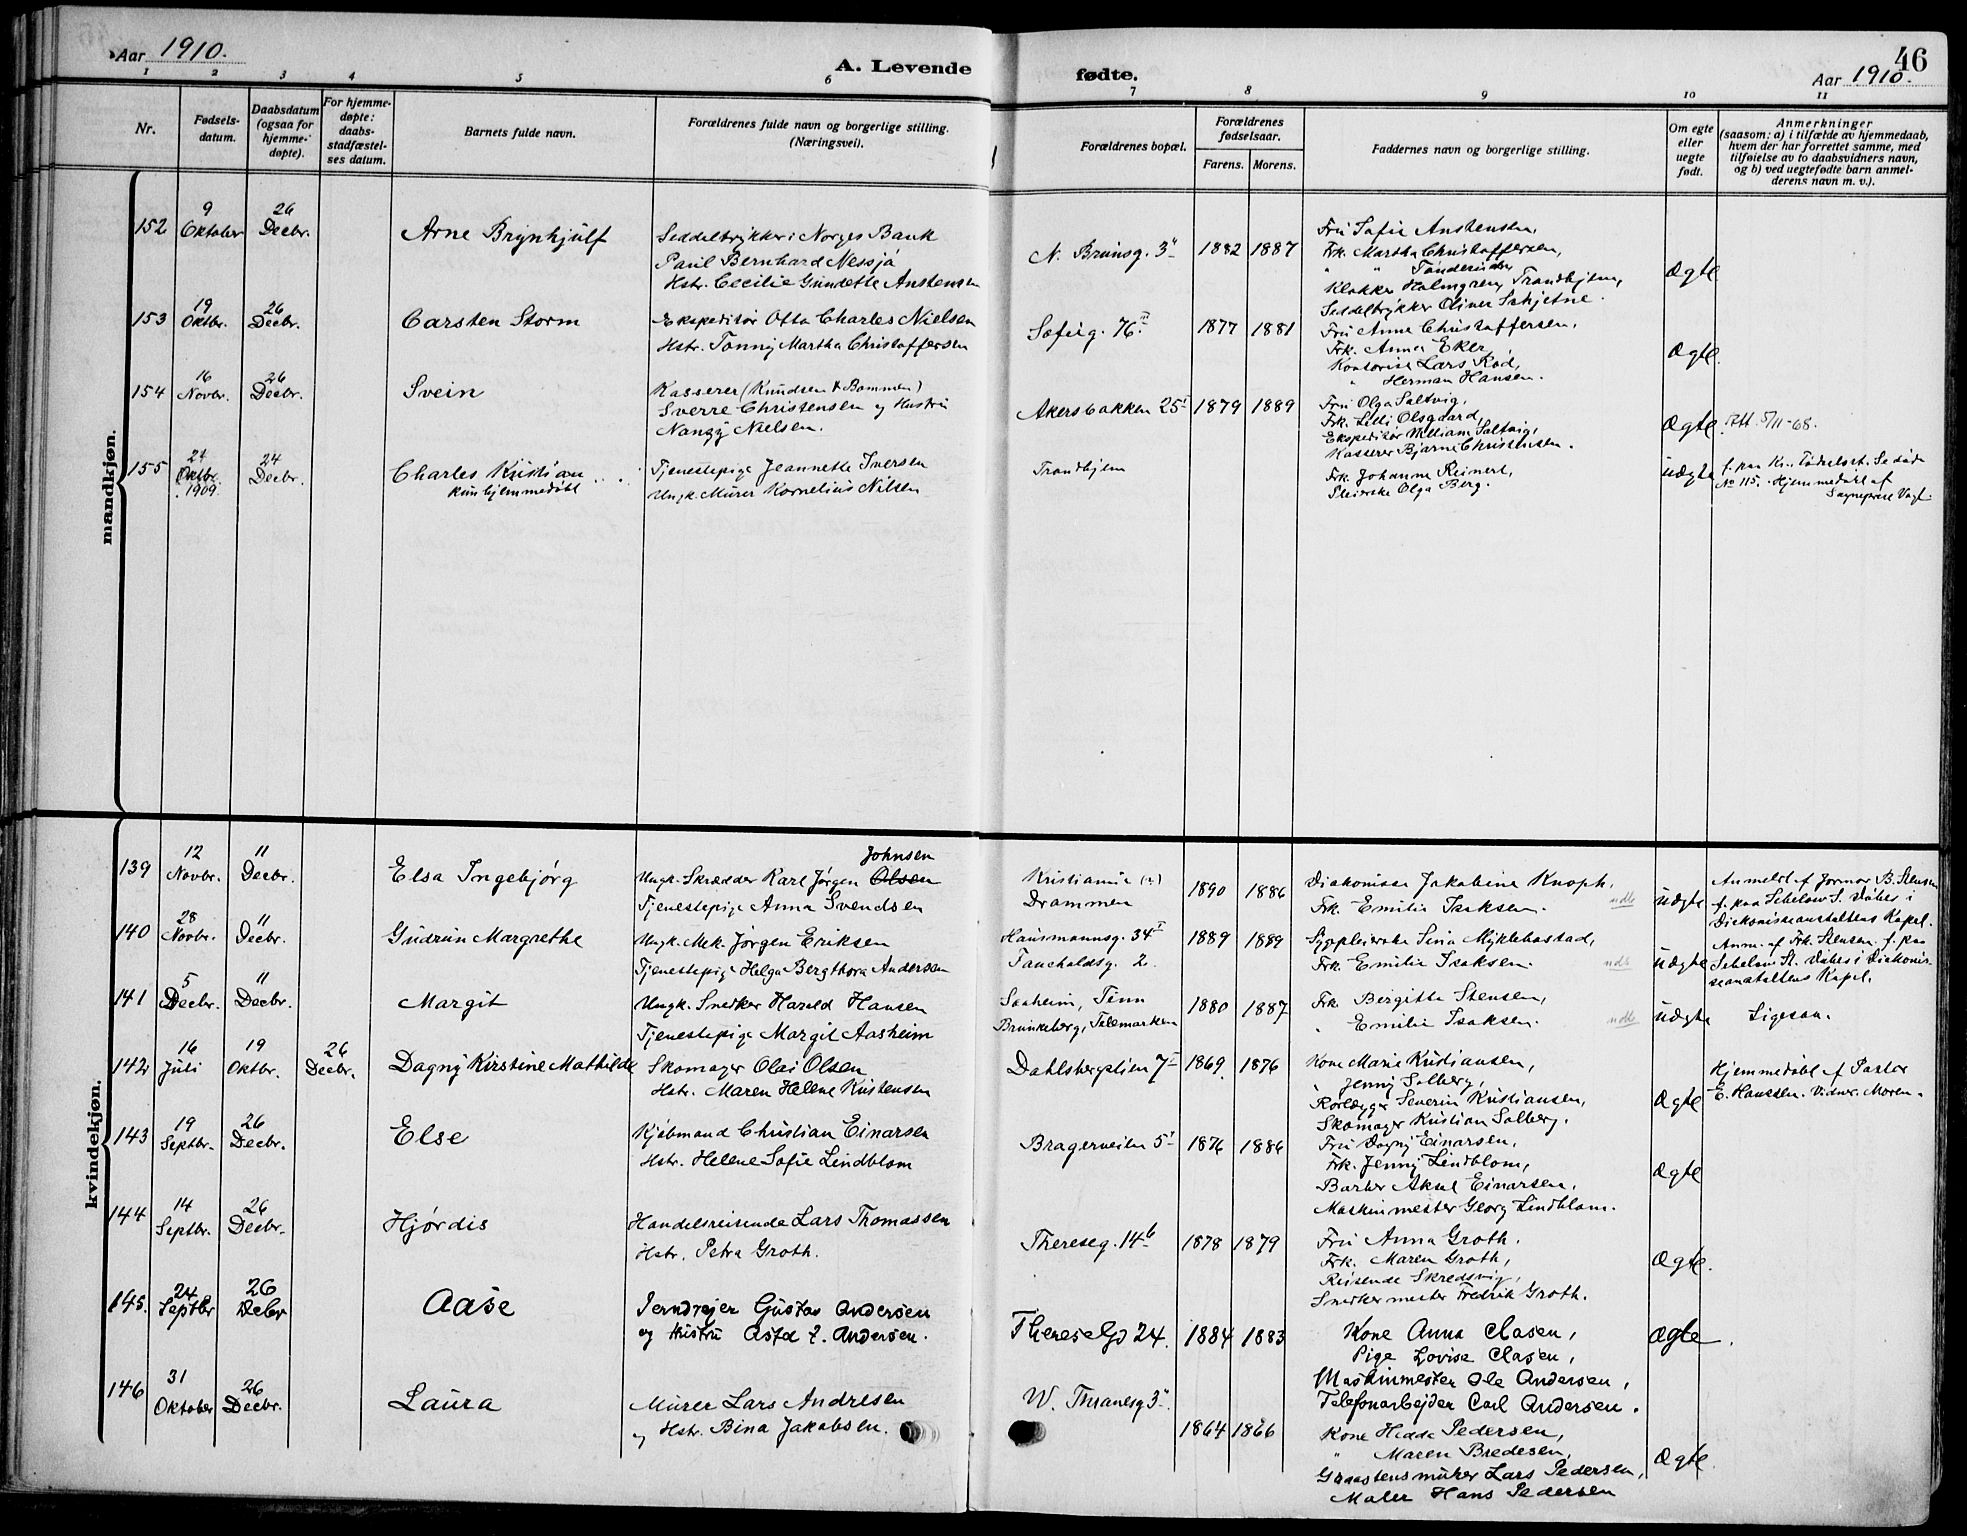 46
Aar 1910.
A. Levende fødte.
Aar 1910.
1 2 3 4 5 6 7 8 9 10 11
Nr.
Fødsels-
datum.
Daabsdatum
(ogsaa for
hjemme-
døpte).
For hjemme-
døpte:
daabs-
stadfæstel-
ses datum.
Barnets fulde navn.
Forældrenes fulde navn og borgerlige stilling.
(Næringsvei).
Forældrenes bopæl.
Forældrenes
fødselsaar.
Farens. Morens.
Faddernes navn og borgerlige stilling.
Om egte
eller
uegte
født.
Anmerkninger
(saasom: a) i tilfælde av hjemmedaab,
hvem der har forrettet samme, med
tilføielse av to daabsvidners navn,
og b) ved uegtefødte barn anmel-
derens navn m. v.).
mandkjøn.
152
9
Oktober
26
Decbr.
Arne Brynhjulf
Seddeltrykker i Norges Bank
Paul Bernhard Nessjø
Hstr. Cecilie Gundette Anstensen
N. Brunsg. 3
1882 1887
Fru Sofie Anstensen,
Frk. Martha Christoffersen,
Klokker Holmgren, Trondhjem,
Seddeltrykker Oliver Schjetne.
Ægte
153
19
Oktbr.
26
Decbr.
Carsten Storm
Ekspeditør Otto Charles Nielsen
Hstr. Tonny Martha Christoffersen
Sofieg. 76
1877 1881
Fru Anna Christoffersen,
Frk. Anna Eker,
Kontorist Lars Rød,
" Herman Hansen.
Ægte
154
16
Novbr.
26
Decbr.
Svein
Kasserer (Knudsen & Bommen)
Sverre Christensen og Hustru
Nanzy Nielsen.
Akersbakken 25
1879 1889
Fru Olga Saltvig,
Frk. Lilli Olsgaard,
Ekspeditør William Saltvig,
Kasserer Bjarne Christensen.
Ægte
Att. 5/11-68.
155
24
Oktbr.
1909
24
Decbr.
Charles Kristian
kun hjemmedøbt
Tjenestepige Jeannette Iversen
Ungk. Murer Kornelius Nilsen
Trondhjem
Frk. Johanne Reinert,
Pleierske Olga Berg.
uægte
f. paa Kr. Fødselsst. Se døde
No 115. Hjemmedøbt af
Sogneprest Vogt.
kvindekjøn.
139
12
Novbr.
11
Decbr.
Elsa Ingebjørg
Johnsen
Ungk. Skrædder Karl Jørgen Olsen
Tjenestepige Anna Svendsen
Kristiania (?)
Drammen
1890 1886
Diakonisse Jakobine Knoph.
Frk. Emilie Isaksen.
uægte
140
28
Novbr.
11
Decbr.
Gudrun Margrethe
Ungk. Mek. Jørgen Eriksen
Tjenestepige Helga Bergthora Andersen
Hausmannsg. 34
Fauchaldsg. 2.
1889 1889
Sygepleierske Sina Myklebostad,
Frk. Emilie Isaksen.
uægte
Anm. af Frk. Stensen. f. paa
141
5
Decbr.
11
Decbr.
Margit
Ungk. Snedker Harald Hansen
Tjenestepige Margit Aasheim
Saaheim, Tinn
Brunkeberg, Telemarken
1880 1887
Frk. Birgitte Stensen,
" Emilie Isaksen.
uægte
Ligesaa.
142
16
Juli
19
Oktbr.
26
Decbr.
Dagny Kirstine Mathilde
Skomager Olai Olsen
Hstr. Maren Helene Kristensen
Dahlsbergstien 7
1869. 1876
Kone Marie Kristiansen,
" Jenny Solberg,
Rørlægger Severin Kristiansen,
Skomager Kristian Solberg.
Ægte
Hjemmedøbt af Pastor
E. Hanssen. Vidner. Moren.
143
19
Septbr.
26
Decbr.
Else
Kjøbmand Christian Einarsen
Hstr. Helene Sofie Lindblom
Bragerveien 5
1876 1886
Fru Dagny Einarsen,
Frk. Jenny Lindblom,
Barber Aksel Einarsen,
Maskinmester Georg Lindblom.
Ægte
144
14
Septbr.
26
Decbr.
Hjørdis
Handelsreisende Lars Thomassen
Hstr. Petra Groth.
Thereseg. 14b
1878 1879
Fru Anna Groth.
Frk. Maren Groth,
Reisende Skredsvig,
Snedkermester Fredrik Groth.
Ægte.
145.
24
Septbr
26
Debr
Aase
Jerndrejer Gustav Andersen
og Hustru Astd F. Andersen.
Therese Gd 24.
1884 1883
Kone Anna Clasen,
Pige Lovise Clasen,
Maskinmester Ole Andersen,
Telefonarbejder Carl Andersen.
Ægte
146
31
Oktober
26
Decbr.
Laura
Murer Lars Andresen
og Hstr. Bina Jakobsen.
W. Thranesg 3
1864 1866
Kone Hedda Pedersen,
" Maren Bredesen,
Graastensmurer Lars Pedersen,
Maler Hans Pedersen
Ægte.